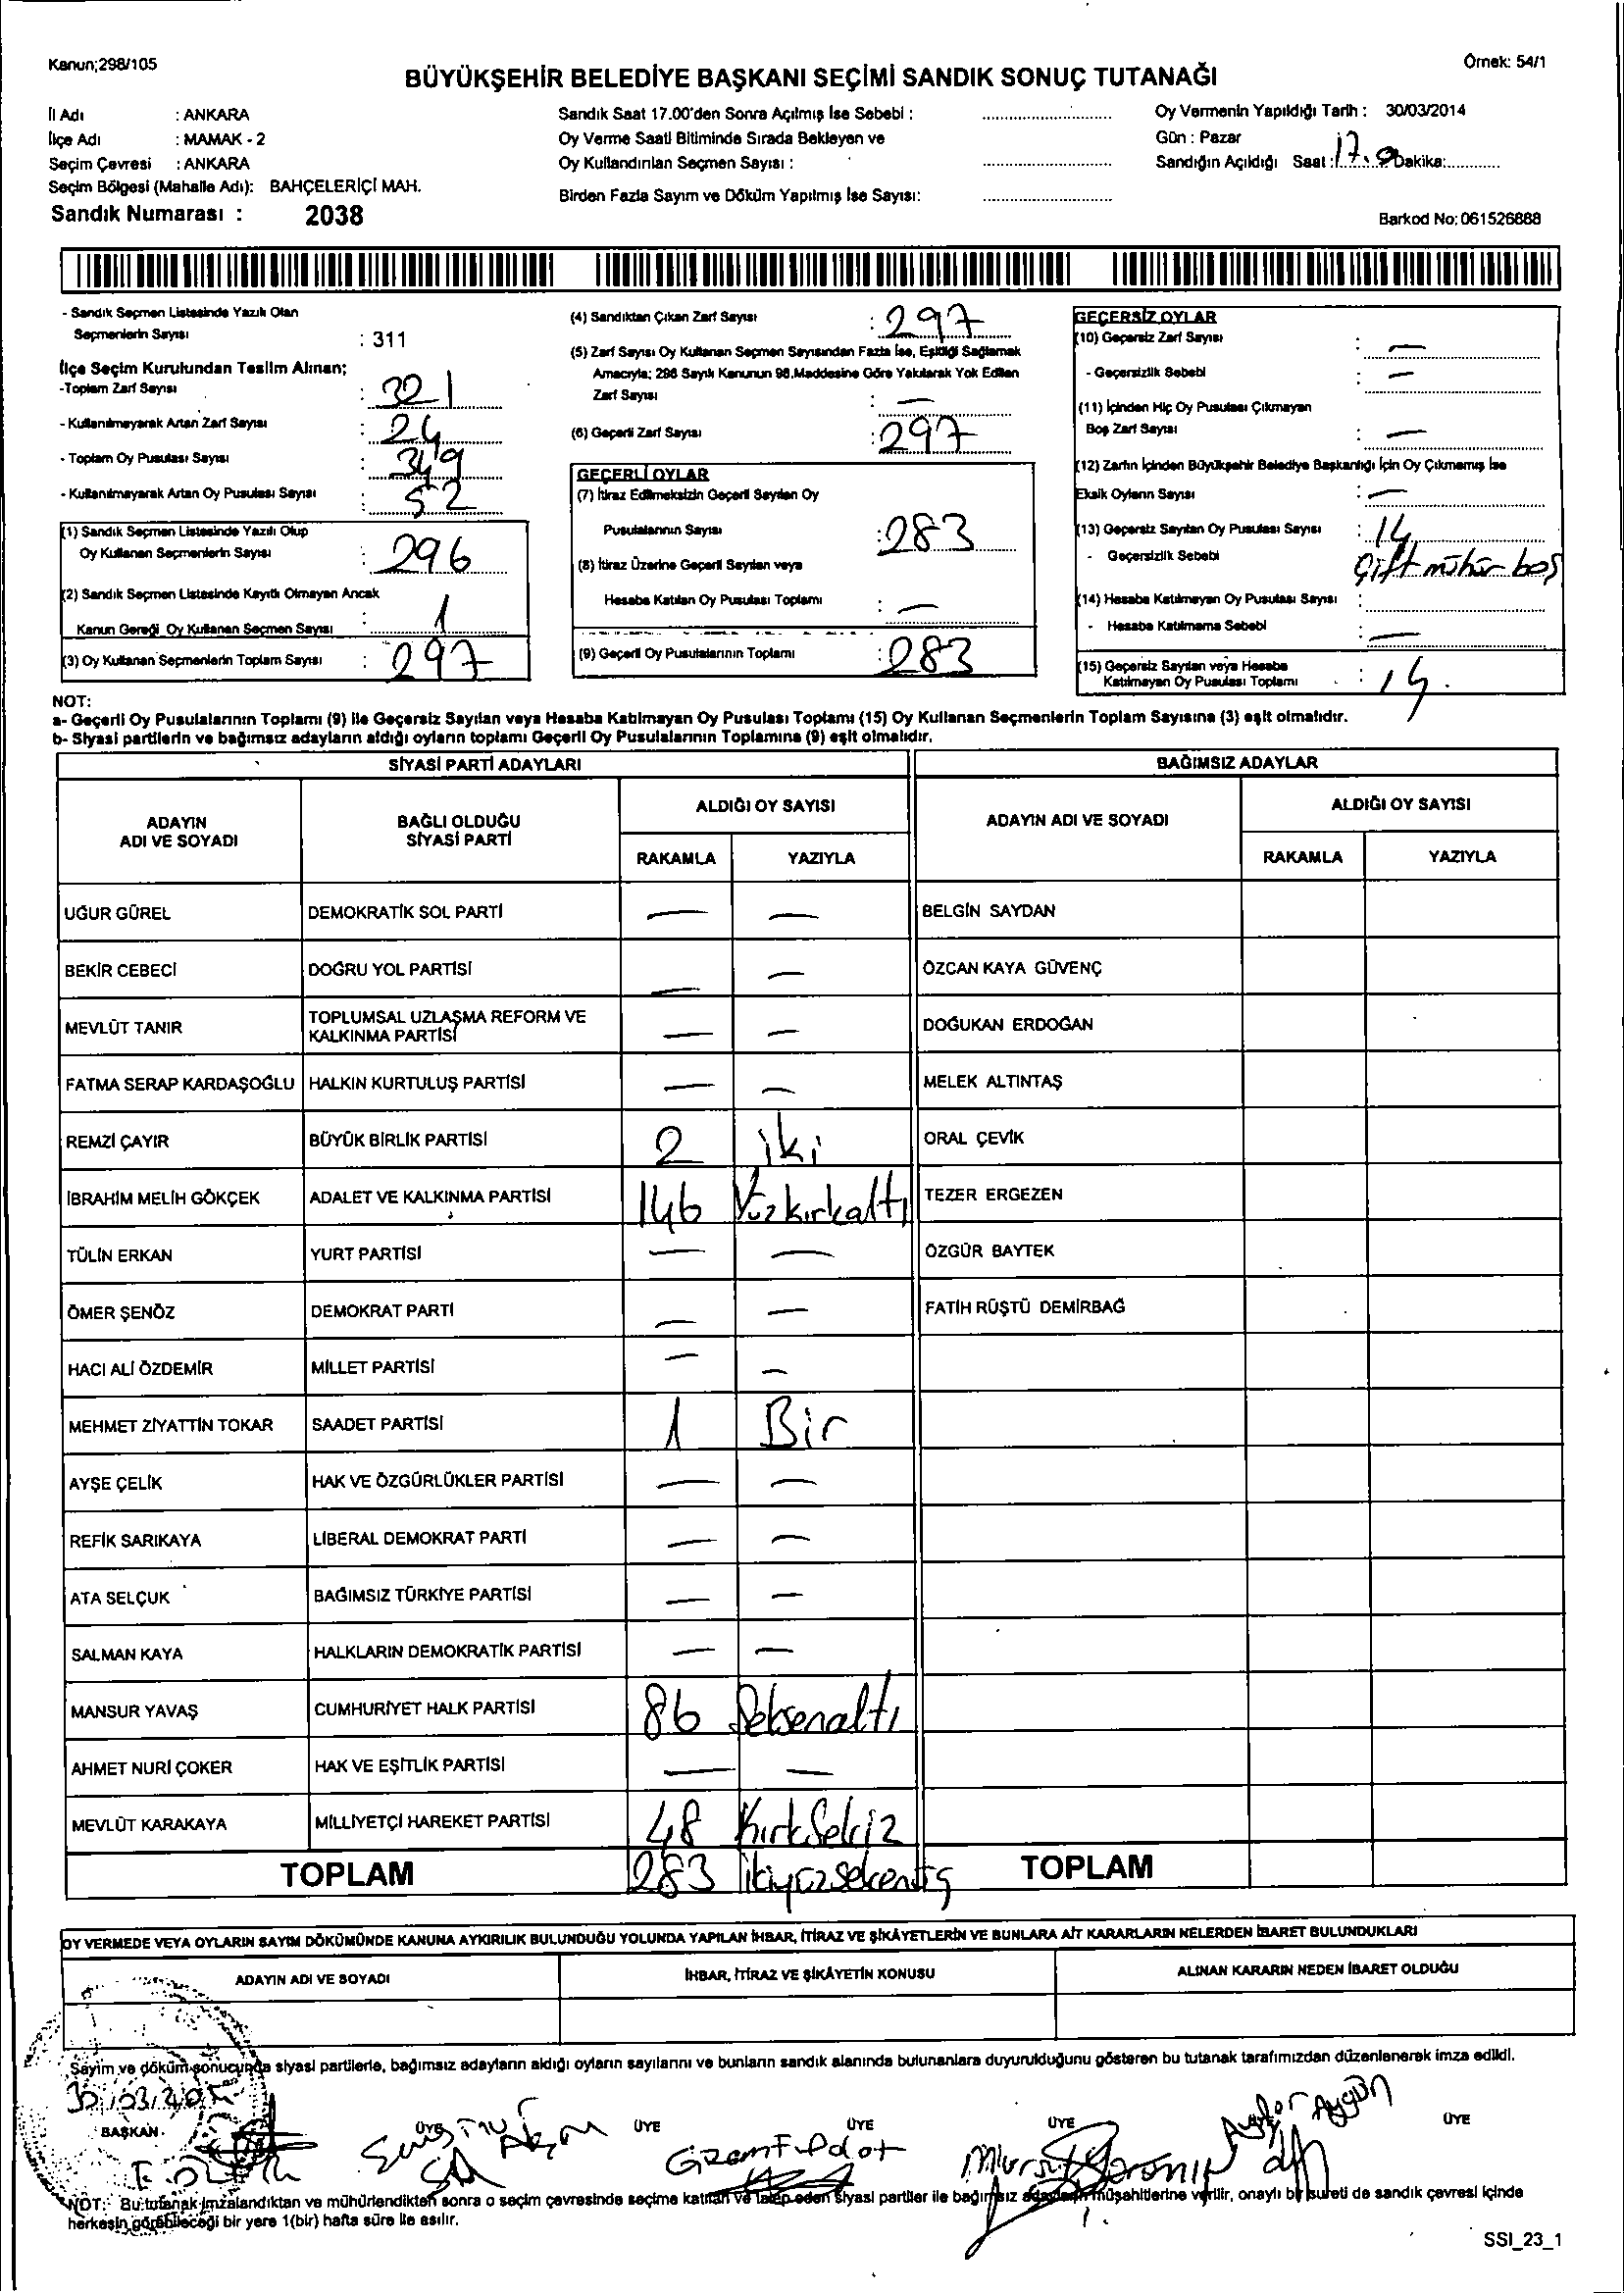 Kanun;298/105
Örnek: 54/1
BÜYÜKŞEHİR BELEDİYE BAŞKANI SEÇİMİ SANDIK SONUÇ TUTANAĞI
İl Adı : ANKARA
İlçe Adı : MAMAK - 2
Seçim Çevresi : ANKARA
Seçim Bölgesi (Mahalle Adı): BAHÇELERİÇİ MAH.
Sandık Numarası : 2038
Sandık Saat 17.00'den Sonra Açılmış İse Sebebi :
Oy Verme Saati Bitiminde Sırada Bekleyen ve
Oy Kullandırılan Seçmen Sayısı :
Birden Fazla Sayım ve Döküm Yapılmış İse Sayısı:
Oy Vermenin Yapıldığı Tarih : 30/03/2014
Gün : Pazar
Sandığın Açıldığı Saat : 17. Dakika:
Barkod No: 061526888
- Sandık Seçmen Listesinde Yazılı Olan
Seçmenlerin Sayısı : 311
İlçe Seçim Kurulundan Teslim Alınan;
-Toplam Zarf Sayısı : 321
- Kullanılmayarak Artan Zarf Sayısı : 24
- Toplam Oy Pusulası Sayısı : 349
- Kullanılmayarak Artan Oy Pusulası Sayısı : 52
(1) Sandık Seçmen Listesinde Yazılı Olup
Oy Kullanan Seçmenlerin Sayısı : 296
(2) Sandık Seçmen Listesinde Kayıtlı Olmayan Ancak
Kanun Gereği Oy Kullanan Seçmen Sayısı : 1
(3) Oy Kullanan Seçmenlerin Toplam Sayısı : 297
(4) Sandıktan Çıkan Zarf Sayısı : 297
(5) Zarf Sayısı Oy Kullanan Seçmen Sayısından Fazla İse, Eşitliği Sağlamak
Amacıyla; 298 Sayılı Kanunun 98.Maddesine Göre Yakılarak Yok Edilen
Zarf Sayısı : —
(6) Geçerli Zarf Sayısı : 297
GEÇERLİ OYLAR
(7) İtiraz Edilmeksizin Geçerli Sayılan Oy
Pusulalarının Sayısı : 283
(8) İtiraz Üzerine Geçerli Sayılan veya
Hesaba Katılan Oy Pusulası Toplamı : —
(9) Geçerli Oy Pusulalarının Toplamı : 283
GEÇERSİZ OYLAR
(10) Geçersiz Zarf Sayısı : —
- Geçersizlik Sebebi : —
(11) İçinden Hiç Oy Pusulası Çıkmayan
Boş Zarf Sayısı : —
(12) Zarfın İçinden Büyükşehir Belediye Başkanlığı İçin Oy Çıkmamış İse
Eksik Oyların Sayısı : —
(13) Geçersiz Sayılan Oy Pusulası Sayısı : 14
- Geçersizlik Sebebi Çift mühür boş
(14) Hesaba Katılmayan Oy Pusulası Sayısı :
- Hesaba Katılmama Sebebi : —
(15) Geçersiz Sayılan veya Hesaba
Katılmayan Oy Pusulası Toplamı : 14.
NOT:
a- Geçerli Oy Pusulalarının Toplamı (9) ile Geçersiz Sayılan veya Hesaba Katılmayan Oy Pusulası Toplamı (15) Oy Kullanan Seçmenlerin Toplam Sayısına (3) eşit olmalıdır.
b- Siyasi partilerin ve bağımsız adayların aldığı oyların toplamı Geçerli Oy Pusulalarının Toplamına (9) eşit olmalıdır.
SİYASİ PARTİ ADAYLARI
BAĞIMSIZ ADAYLAR
ADAYIN ADI VE SOYADI
BAĞLI OLDUĞU SİYASİ PARTİ
ALDIĞI OY SAYISI
RAKAMLA YAZIYLA
ADAYIN ADI VE SOYADI
ALDIĞI OY SAYISI
RAKAMLA YAZIYLA
UĞUR GÜREL DEMOKRATİK SOL PARTİ — — BELGİN SAYDAN
BEKİR CEBECİ DOĞRU YOL PARTİSİ — — ÖZCAN KAYA GÜVENÇ
MEVLÜT TANIR TOPLUMSAL UZLAŞMA REFORM VE KALKINMA PARTİSİ — — DOĞUKAN ERDOĞAN
FATMA SERAP KARDAŞOĞLU HALKIN KURTULUŞ PARTİSİ — — MELEK ALTINTAŞ
REMZİ ÇAYIR BÜYÜK BİRLİK PARTİSİ 2 iki ORAL ÇEVİK
İBRAHİM MELİH GÖKÇEK ADALET VE KALKINMA PARTİSİ 146 Yüzkırkaltı TEZER ERGEZEN
TÜLİN ERKAN YURT PARTİSİ — — ÖZGÜR BAYTEK
ÖMER ŞENÖZ DEMOKRAT PARTİ — — FATİH RÜŞTÜ DEMİRBAĞ
HACI ALİ ÖZDEMİR MİLLET PARTİSİ — —
MEHMET ZİYATTİN TOKAR SAADET PARTİSİ 1 Bir
AYŞE ÇELİK HAK VE ÖZGÜRLÜKLER PARTİSİ — —
REFİK SARIKAYA LİBERAL DEMOKRAT PARTİ — —
ATA SELÇUK BAĞIMSIZ TÜRKİYE PARTİSİ — —
SALMAN KAYA HALKLARIN DEMOKRATİK PARTİSİ — —
MANSUR YAVAŞ CUMHURİYET HALK PARTİSİ 86 Seksenaltı
AHMET NURİ ÇOKER HAK VE EŞİTLİK PARTİSİ — —
MEVLÜT KARAKAYA MİLLİYETÇİ HAREKET PARTİSİ 48 KırkSekiz
TOPLAM 283 ikiyüzseksenüç TOPLAM
OY VERMEDE VEYA OYLARIN SAYIM DÖKÜMÜNDE KANUNA AYKIRILIK BULUNDUĞU YOLUNDA YAPILAN İHBAR, İTİRAZ VE ŞİKÂYETLERİN VE BUNLARA AİT KARARLARIN NELERDEN İBARET BULUNDUKLARI
ADAYIN ADI VE SOYADI İHBAR, İTİRAZ VE ŞİKÂYETİN KONUSU ALINAN KARARIN NEDEN İBARET OLDUĞU
Sayım ve döküm sonucunda siyasi partilerle, bağımsız adayların aldığı oyların sayılarını ve bunların sandık alanında bulunanlara duyurulduğunu gösteren bu tutanak tarafımızdan düzenlenerek imza edildi.
BAŞKAN ÜYE ÜYE ÜYE ÜYE ÜYE
Aygün
NOT: Bu tutanak imzalandıktan ve mühürlendikten sonra o seçim çevresinde seçime katılan ve talep eden siyasi partiler ile bağımsız adayların müşahitlerine verilir, onaylı bir sureti de sandık çevresi içinde
herkesin görebileceği bir yere 1(bir) hafta süre ile asılır.
SSI_23_1